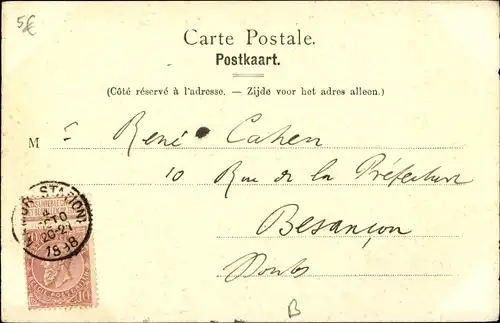 5€
Carte Postale.
Postkaart.
(Côté réservé à l'adresse. — Zijde voor het adres alleen.)
M René Cahen
10 Rue de la Préfecture
Besançon
Doubs
B
(STATION)
OCTO
1898
10